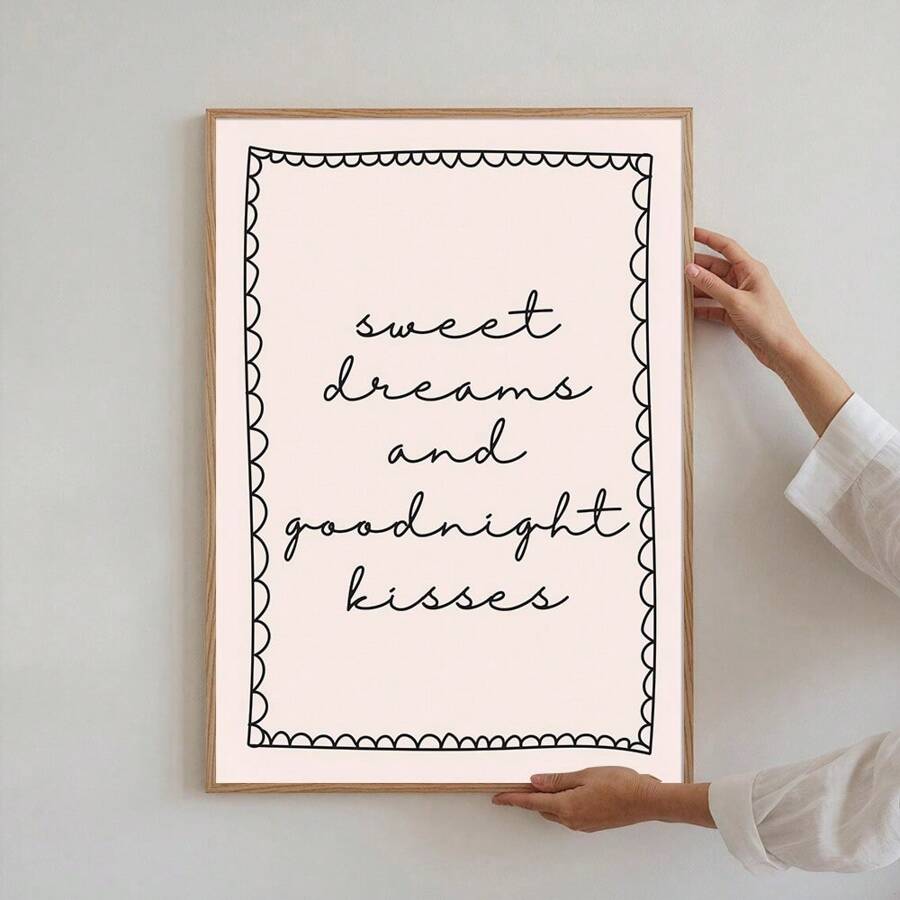 sweet
dreams
and
goodnight
kisses